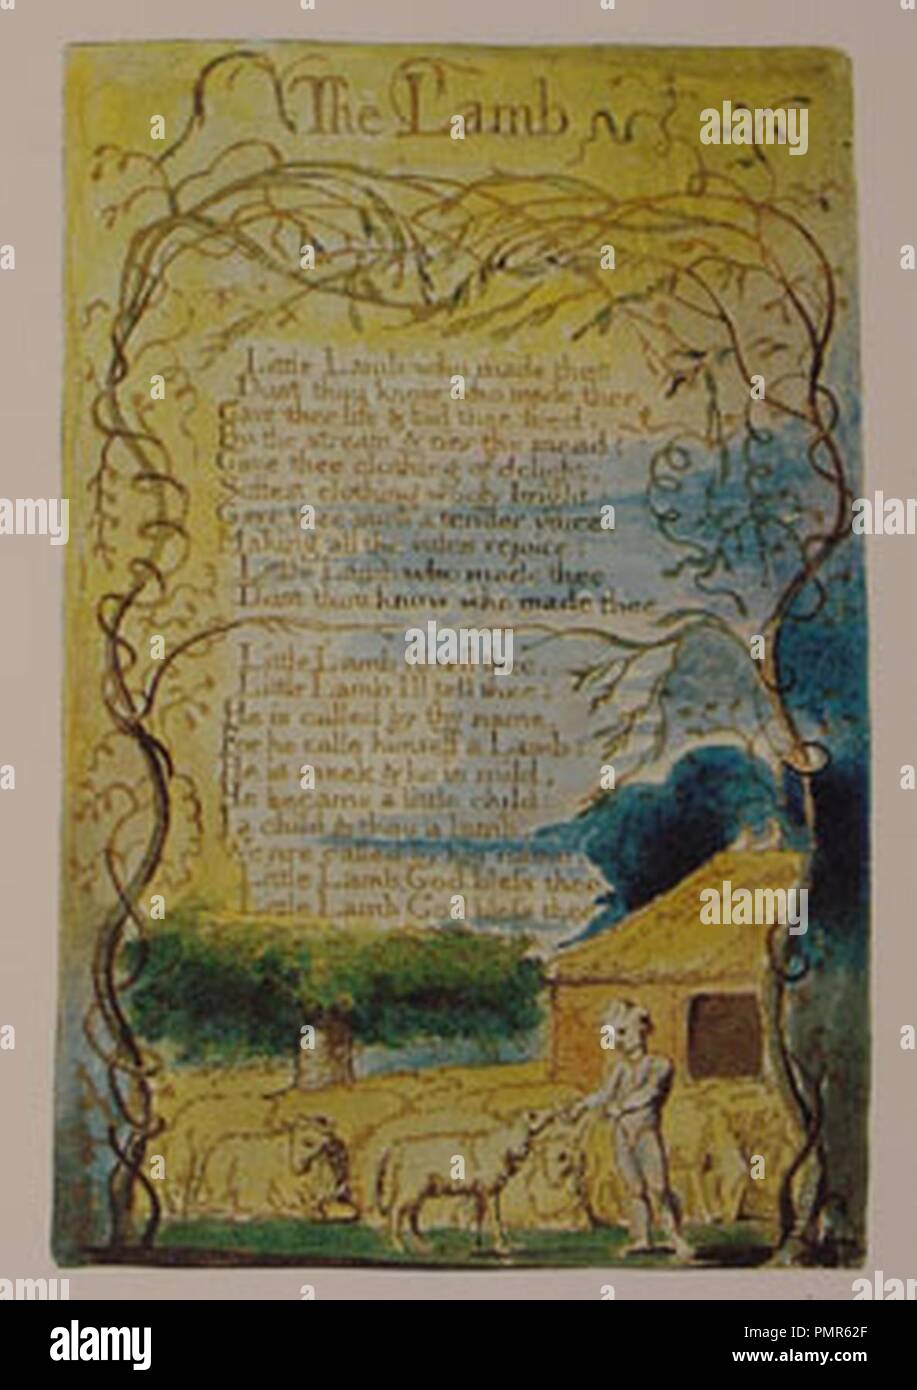 The Lamb
Little Lamb who made thee
Dost thou know who made thee
Gave thee life & bid thee feed.
By the stream & o'er the mead;
Gave thee clothing of delight,
Softest clothing wooly bright;
Gave thee such a tender voice,
Making all the vales rejoice:
Little Lamb who made thee
Dost thou know who made thee
Little Lamb I'll tell thee,
Little Lamb I'll tell thee;
He is called by thy name,
For he calls himself a Lamb:
He is meek & he is mild,
He became a little child:
I a child & thou a lamb,
We are called by his name.
Little Lamb God bless thee.
Little Lamb God bless thee.
alamy
alamy
alamy
a
a
a
a
a
a
alamy
Image ID: PMR62F
www.alamy.com